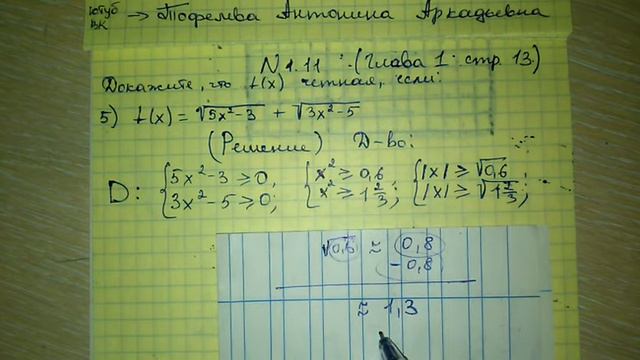 ютуб
ВК → Тофелева Антонина Аркадьевна
N 1.11 (Глава 1: стр. 13)
Докажите, что f(x) четная, если:
5) f(x) = √5x²-3 + √3x²-5
(Решение) D-во:
D: { 5x²-3 ≥ 0, { x² ≥ 0,6 { |x| ≥ √0,6,
{ 3x²-5 ≥ 0; { x² ≥ 1 2/3; { |x| ≥ √1 2/3;
√0,6 ≈ 0,8
-0,8
≈ 1,3